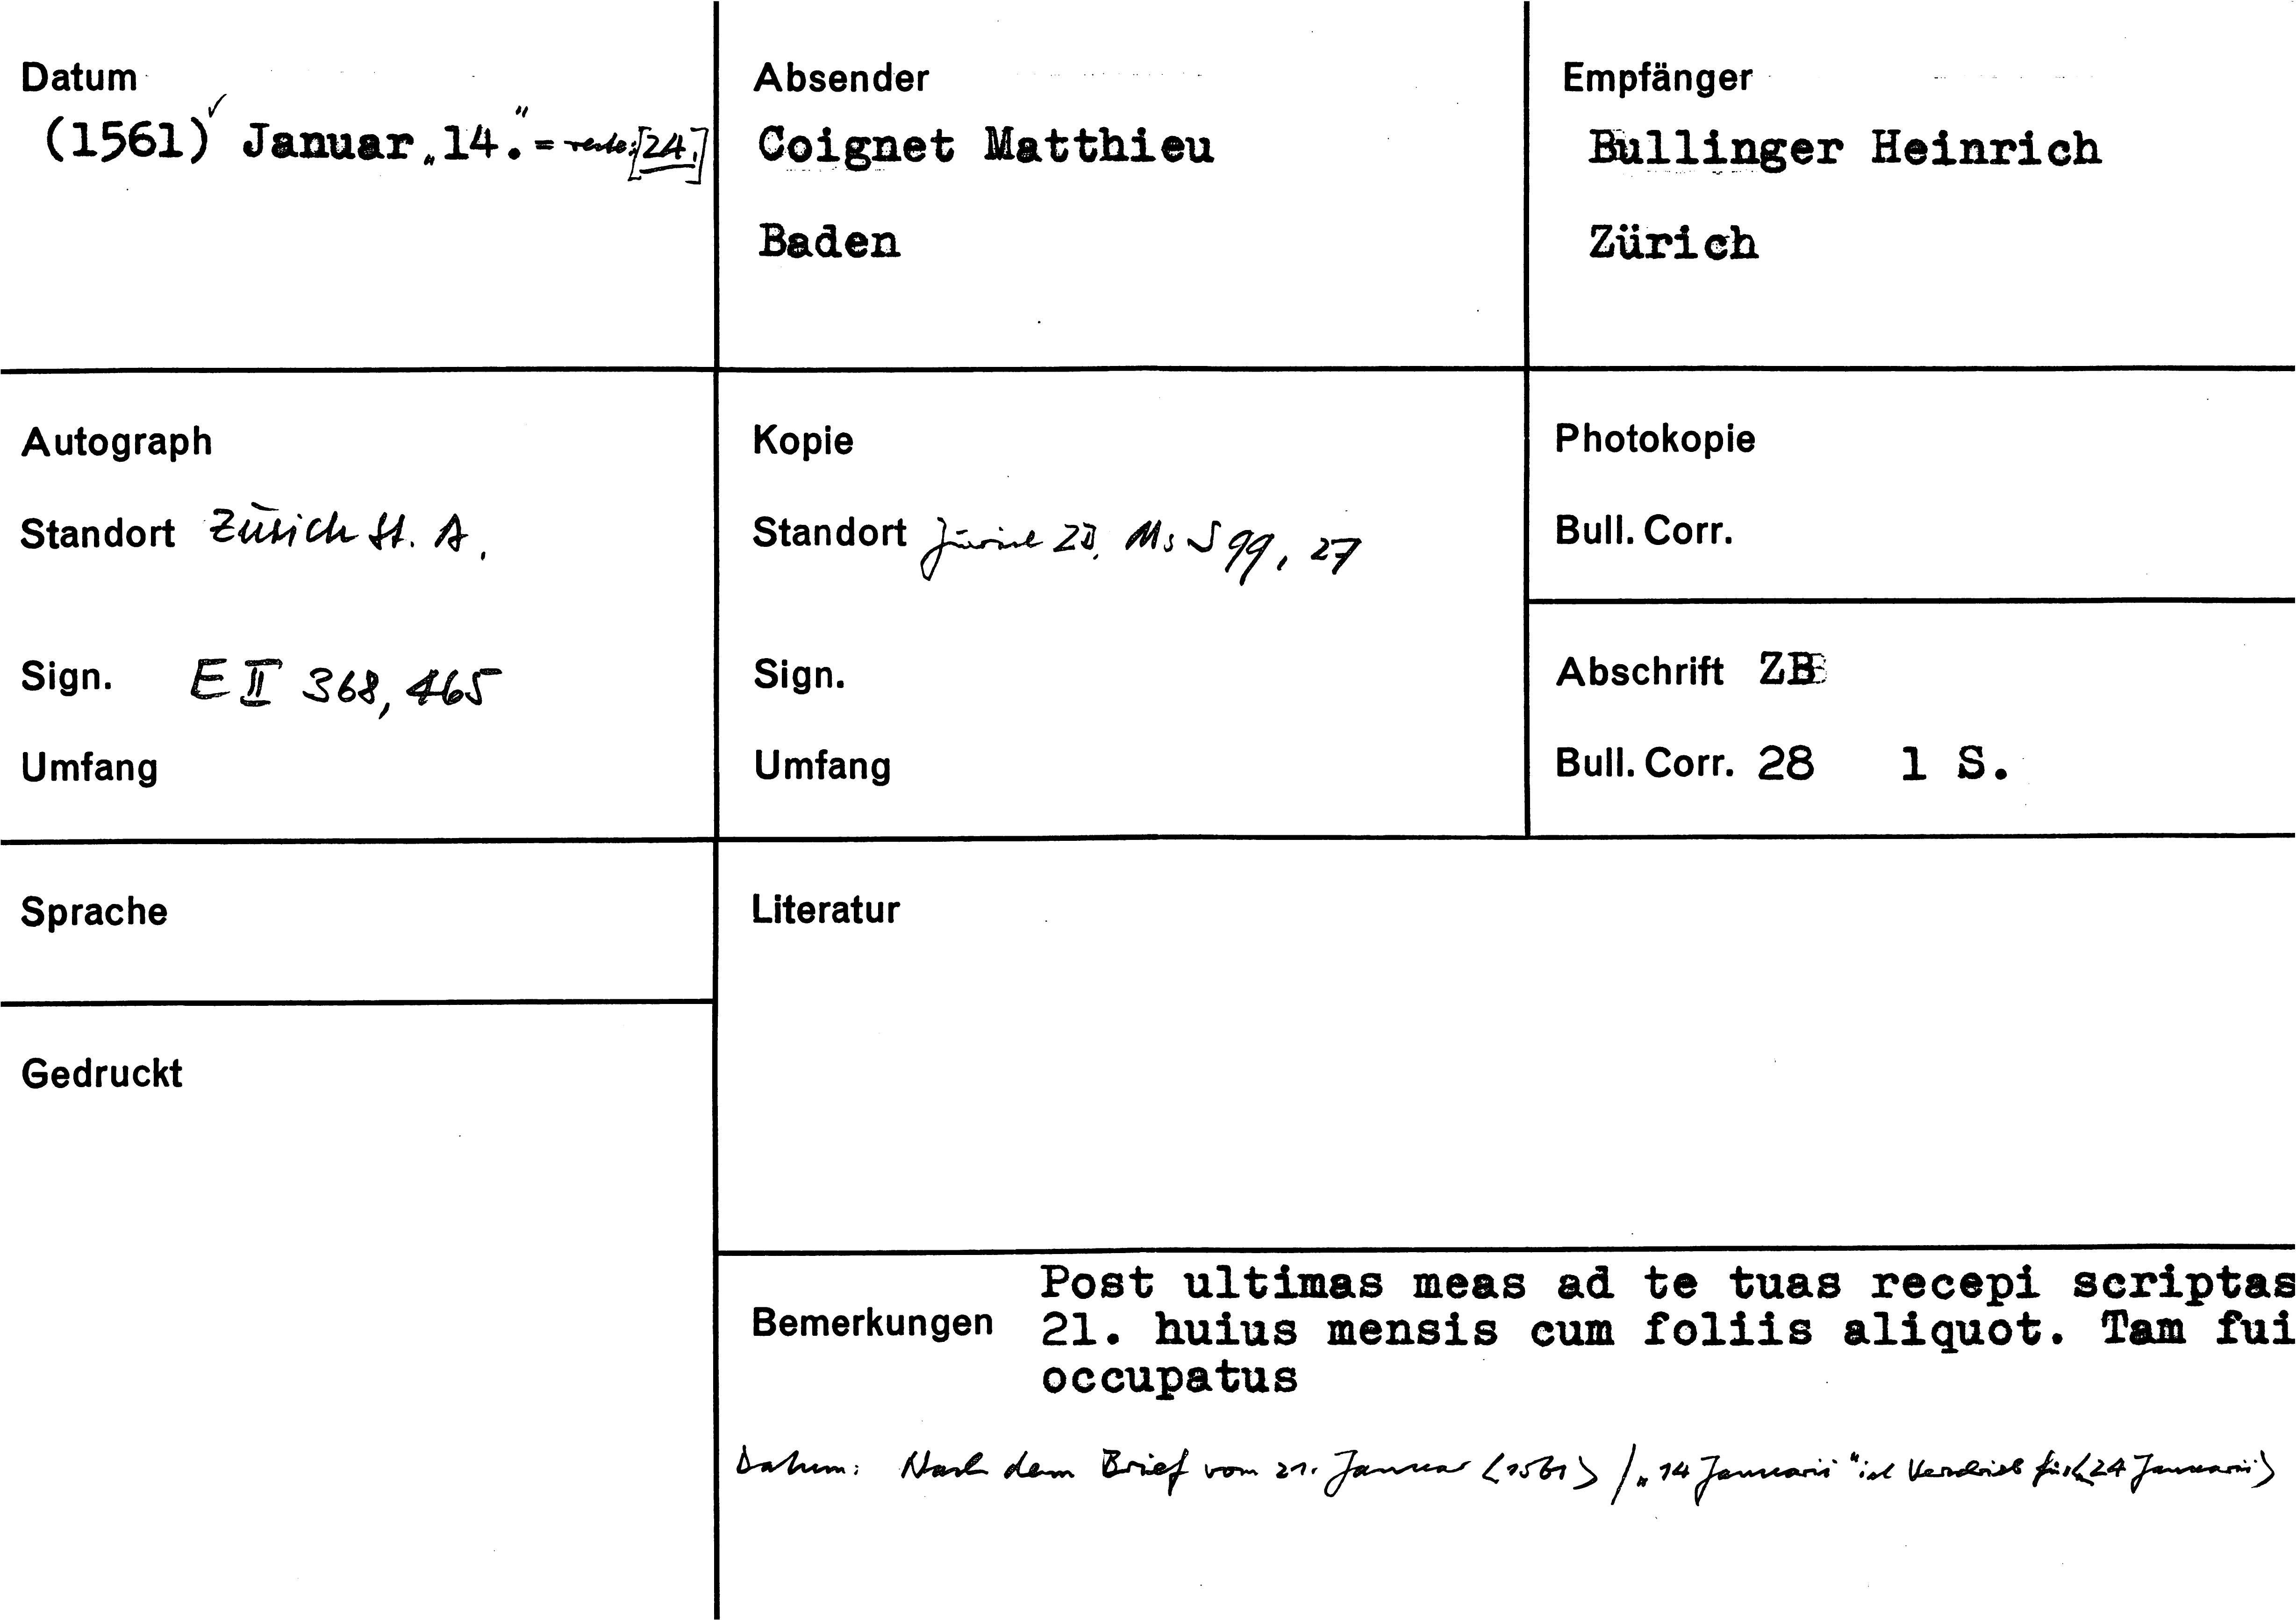 Datum
(1561)✓ Januar „14.“ = recte: [24.]
Absender
Coignet Matthieu
Baden
Empfänger
Bullinger Heinrich
Zürich
Autograph
Standort Zürich St. A.
Sign. E II 368, 465
Umfang
Kopie
Standort Zürich ZB, Ms S 99, 27
Sign.
Umfang
Photokopie
Bull. Corr.
Abschrift ZB
Bull. Corr. 28 1 S.
Sprache
Gedruckt
Literatur
Bemerkungen
Post ultimas meas ad te tuas recepi scriptas
21. huius mensis cum foliis aliquot. Tam fui
occupatus
Datum: Nach dem Brief vom 21. Januar <1561> / „14 Januarii“ ist Verschrieb für <24 Januarii>